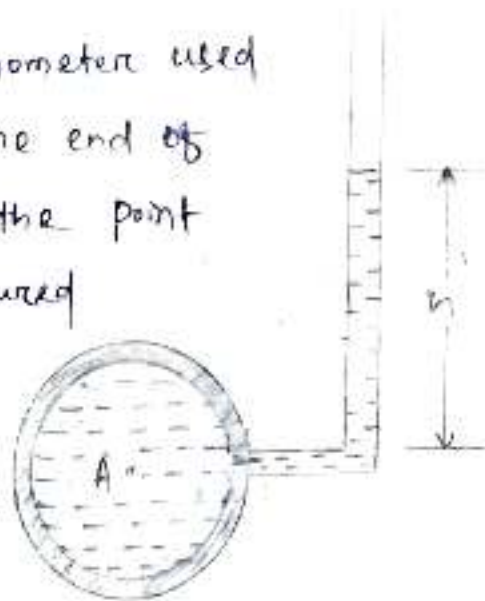 nometer used
he end of
the point
ured
h
A